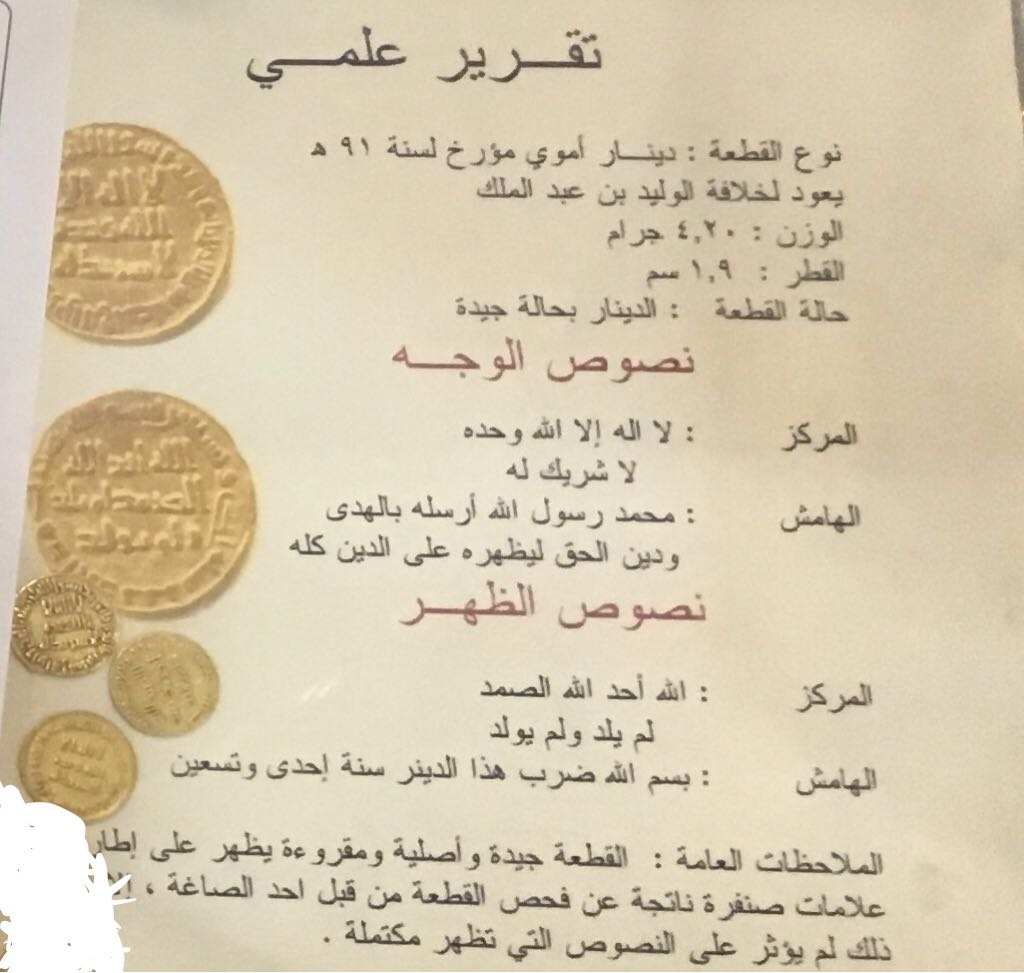 تقرير علمي
نوع القطعة : دينار أموي مؤرخ لسنة ٩١ ه
يعود لخلافة الوليد بن عبد الملك
الوزن : ٤,٢٠ جرام
القطر : ١,٩ سم
حالة القطعة : الدينار بحالة جيدة
نصوص الوجه
المركز : لا اله إلا الله وحده
لا شريك له
الهامش : محمد رسول الله أرسله بالهدى
ودين الحق ليظهره على الدين كله
نصوص الظهر
المركز : الله أحد الله الصمد
لم يلد ولم يولد
الهامش : بسم الله ضرب هذا الدينر سنة إحدى وتسعين
الملاحظات العامة : القطعة جيدة وأصلية ومقروءة يظهر على إطار
علامات صنفرة ناتجة عن فحص القطعة من قبل احد الصاغة ،
ذلك لم يؤثر على النصوص التي تظهر مكتملة .